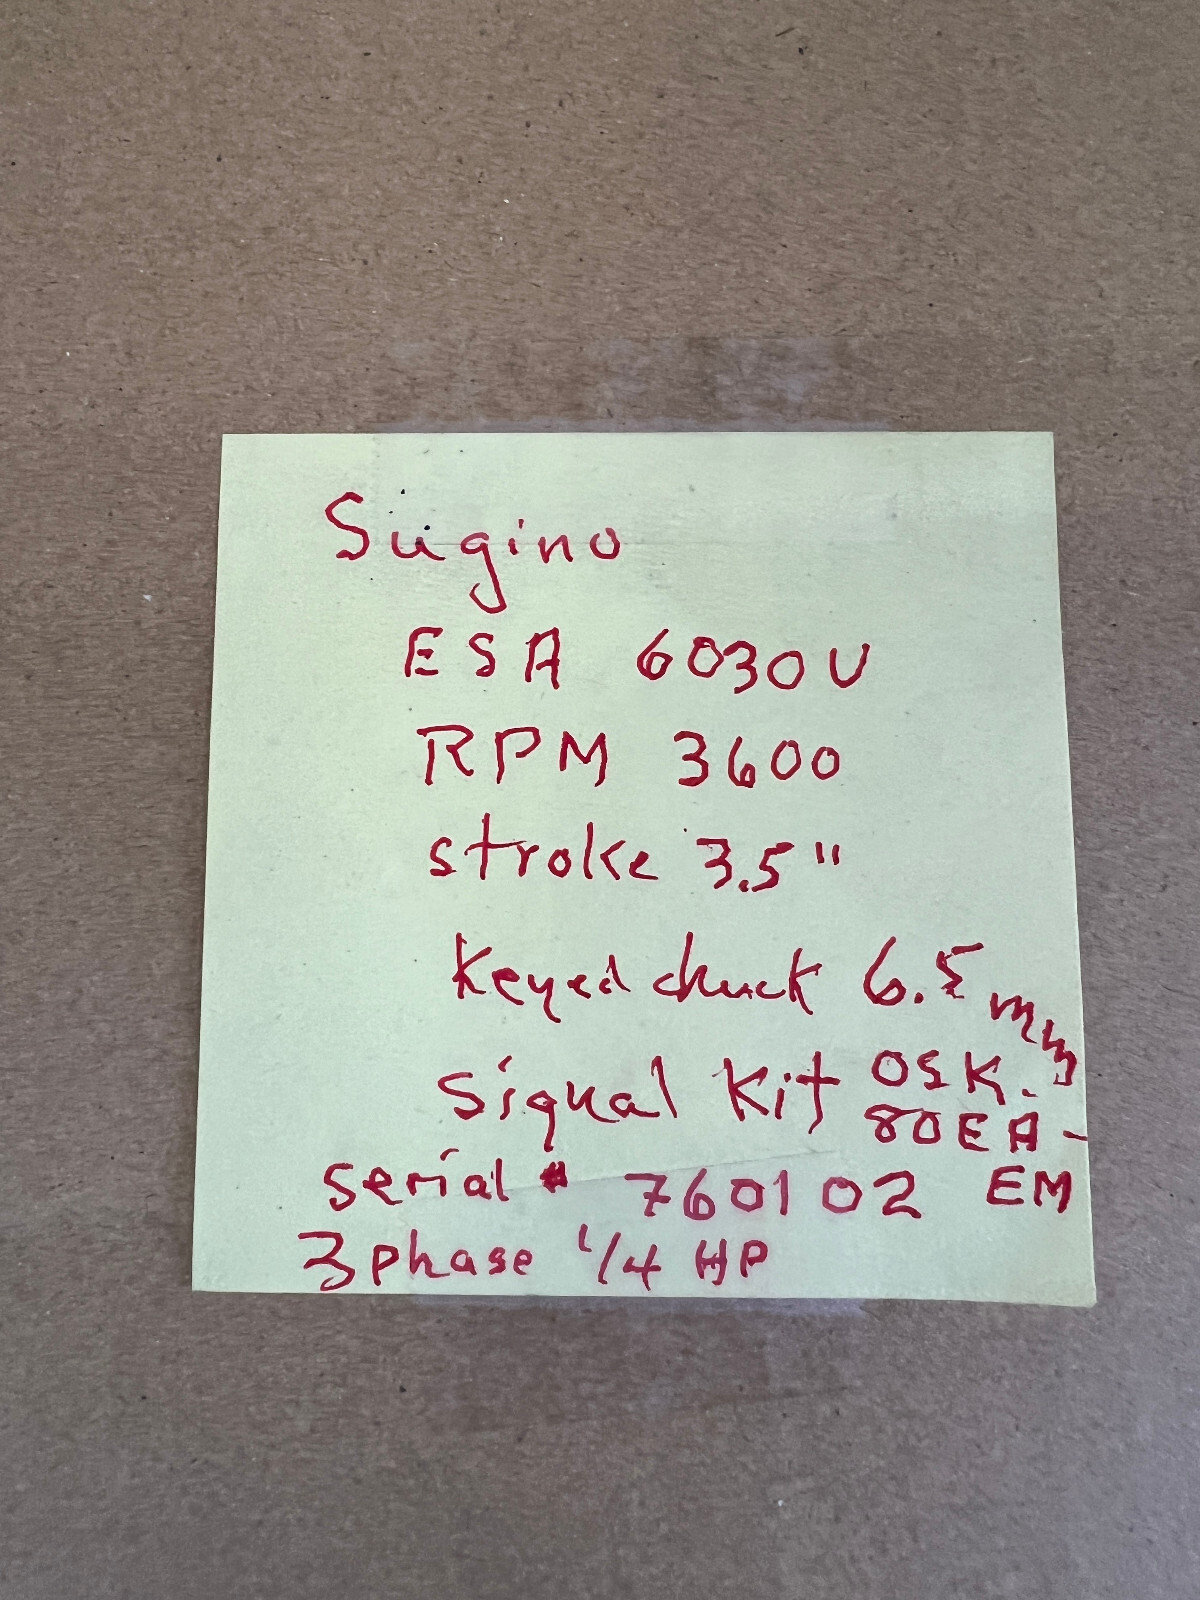 Sugino
ESA 6030U
RPM 3600
stroke 3.5"
Keyed chuck 6.5 mm
Signal Kit OSK.
80EA-
EM
serial # 760102
3 phase 1/4 HP